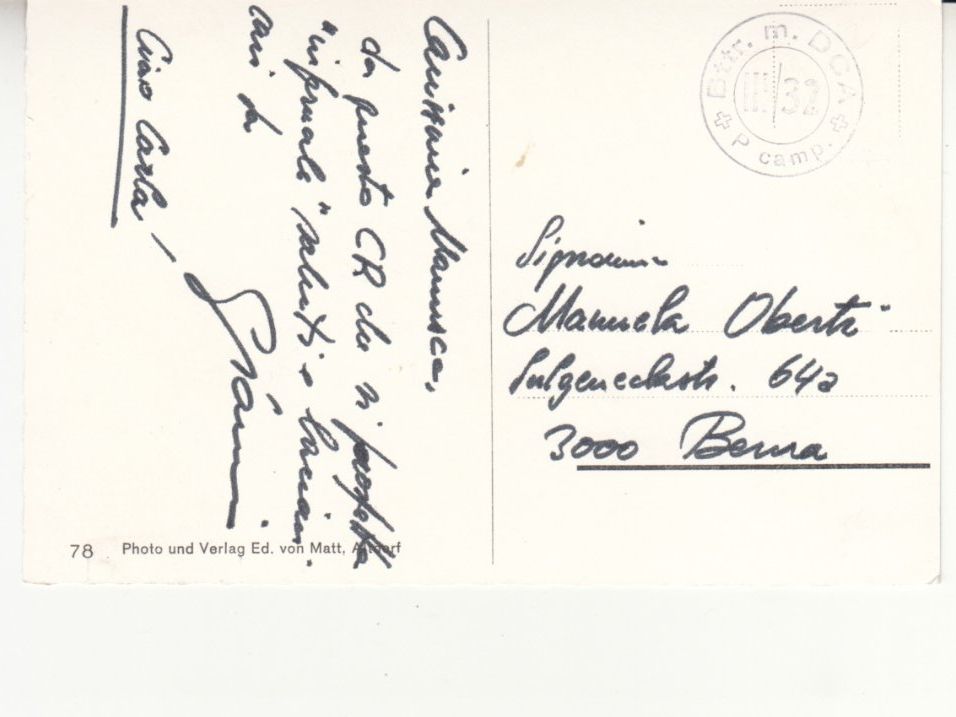 Carissima Manusca,
da questo CR che si prospetta
"infernale" saluti e bacioni
cari da
Gianni
Ciao Carla
Signorina
Manuela Oberti
Sulgeneckstr. 64a
3000 Berna
Bttr. m. DCA
III/32
P camp.
78 Photo und Verlag Ed. von Matt, Altdorf